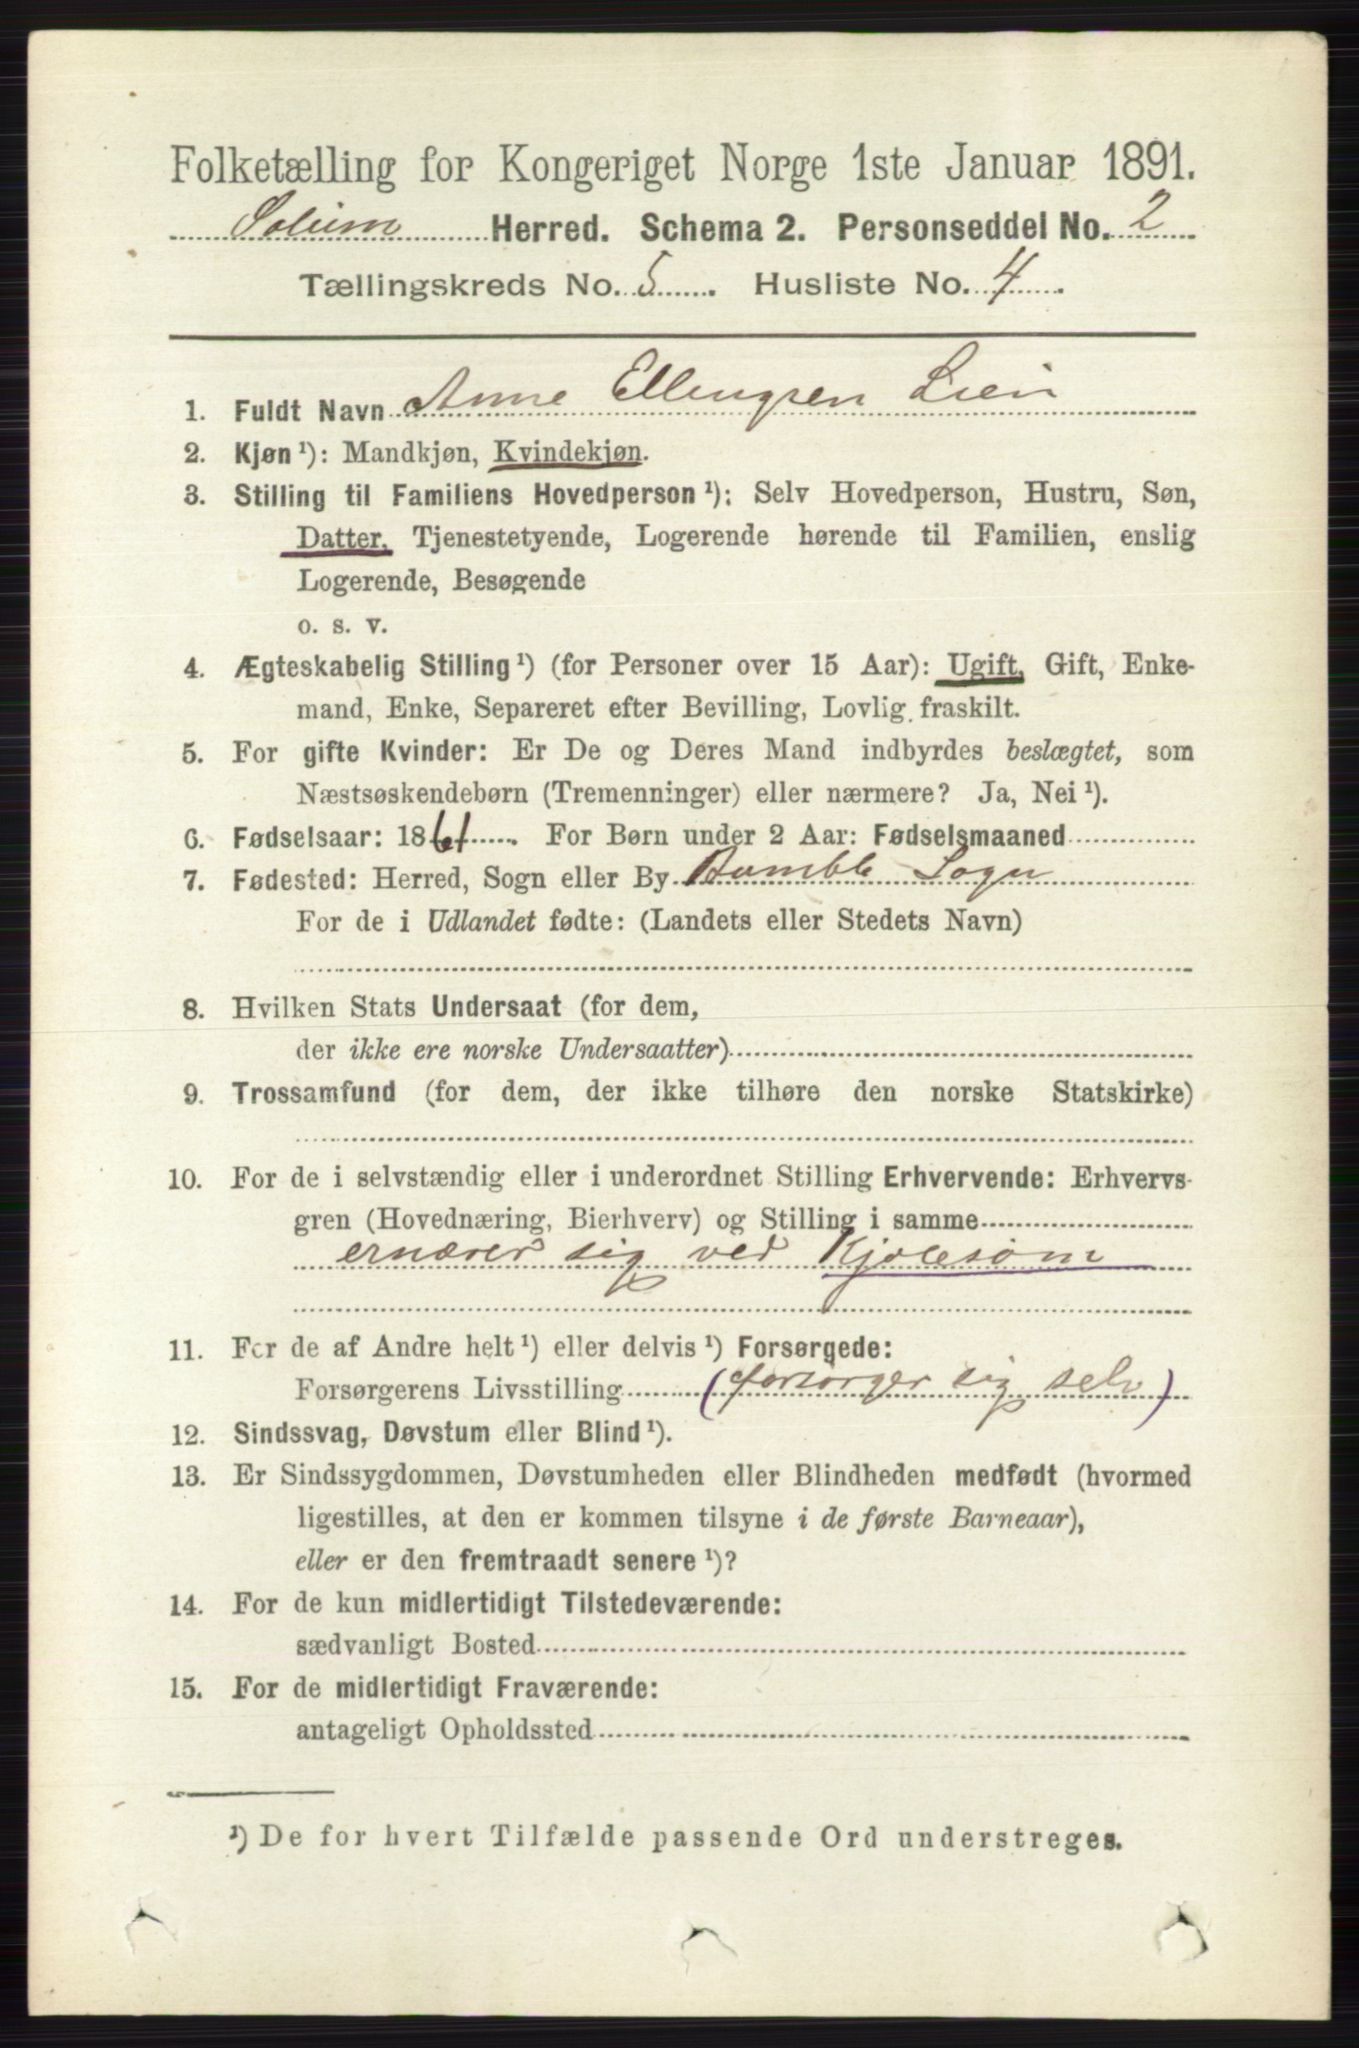 Folketælling for Kongeriget Norge 1ste Januar 1891.
Solum Herred. Schema 2. Personseddel No. 2
Tællingskreds No. 5. Husliste No. 4.
1. Fuldt Navn Anne Ellingsen Lien
2. Kjøn ¹): Mandkjøn, Kvindekjøn.
3. Stilling til Familiens Hovedperson ¹): Selv Hovedperson, Hustru, Søn,
Datter, Tjenestetyende, Logerende hørende til Familien, enslig
Logerende, Besøgende
o. s. v.
4. Ægteskabelig Stilling ¹) (for Personer over 15 Aar): Ugift, Gift, Enke-
mand, Enke, Separeret efter Bevilling, Lovlig fraskilt.
5. For gifte Kvinder: Er De og Deres Mand indbyrdes beslægtet, som
Næstsøskendebørn (Tremenninger) eller nærmere? Ja, Nei ¹).
6. Fødselsaar: 1861. For Børn under 2 Aar: Fødselsmaaned
7. Fødested: Herred, Sogn eller By Bamble Sogn
For de i Udlandet fødte: (Landets eller Stedets Navn)
8. Hvilken Stats Undersaat (for dem,
der ikke ere norske Undersaatter)
9. Trossamfund (for dem, der ikke tilhøre den norske Statskirke)
10. For de i selvstændig eller i underordnet Stilling Erhvervende: Erhvervs-
gren (Hovednæring, Bierhverv) og Stilling i samme
ernærer sig ved Kjolesøm
11. For de af Andre helt ¹) eller delvis ¹) Forsørgede:
Forsørgerens Livsstilling (forsørger sig selv)
12. Sindssvag, Døvstum eller Blind ¹).
13. Er Sindssygdommen, Døvstumheden eller Blindheden medfødt (hvormed
ligestilles, at den er kommen tilsyne i de første Barneaar),
eller er den fremtraadt senere ¹)?
14. For de kun midlertidigt Tilstedeværende:
sædvanligt Bosted
15. For de midlertidigt Fraværende:
antageligt Opholdssted
¹) De for hvert Tilfælde passende Ord understreges.